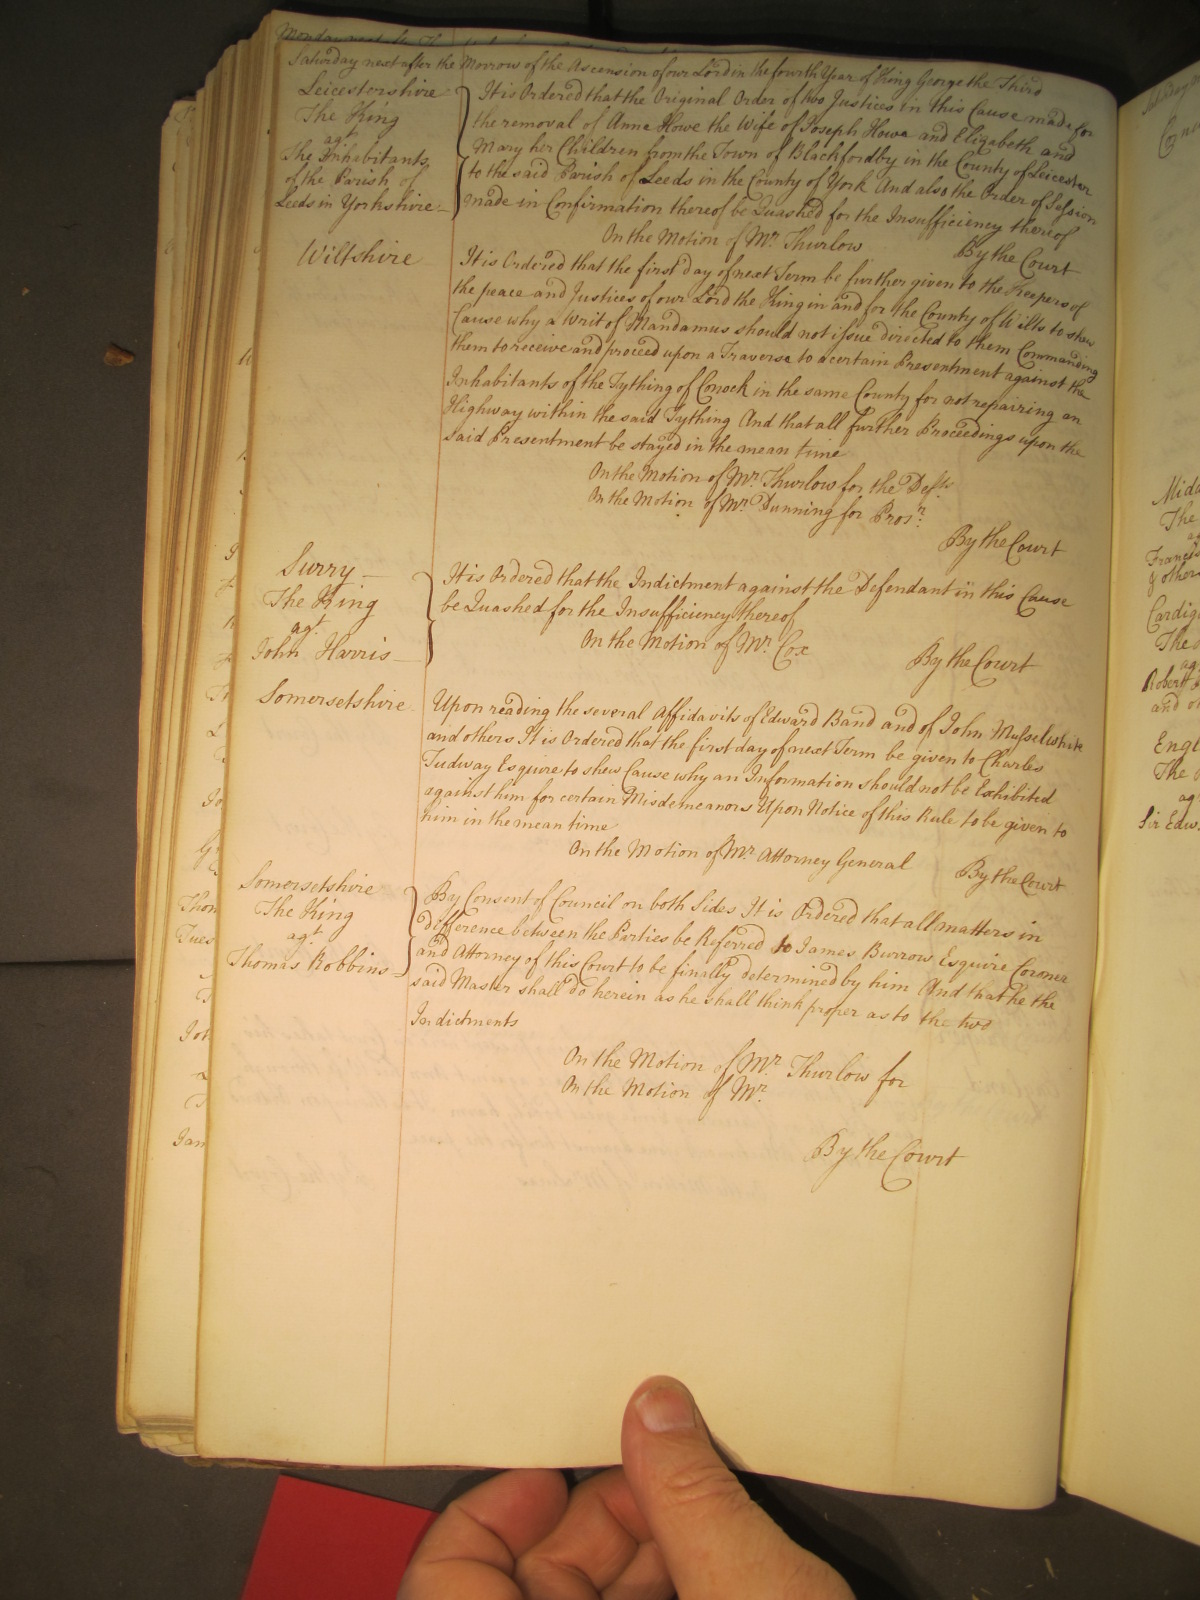 Saturday next after the Morrow of the Ascension of our Lord in the fourth Year of King George the Third
Leicestershire
The King
agt
The Inhabitants
of the Parish of
Leeds in Yorkshire
It is Ordered that the Original Order of two Justices in this Cause made for
the removal of Anne Howe the Wife of Joseph Howe and Elizabeth and
Mary her Children from the Town of Blackfordby in the County of Leicester
to the said Parish of Leeds in the County of York And also the Order of Session
made in Confirmation thereof be Quashed for the Insufficiency thereof
On the Motion of Mr. Thurlow
By the Court
Wiltshire
It is Ordered that the first day of next Term be further given to the Keepers of
the peace and Justices of our Lord the King in and for the County of Wilts to shew
Cause why a Writ of Mandamus should not issue directed to them Commanding
them to receive and proceed upon a Traverse to a certain Presentment against the
Inhabitants of the Tything of Conock in the same County for not repairing an
Highway within the said Tything And that all further Proceedings upon the
said Presentment be stayed in the mean time
On the Motion of Mr. Thurlow for the Defts.
On the Motion of Mr. Dunning for Prosr.
By the Court
Surry
The King
agt.
John Harris
It is Ordered that the Indictment against the Defendant in this Cause
be Quashed for the Insufficiency thereof
On the Motion of Mr. Cox
By the Court
Somersetshire
Upon reading the several Affidavits of Edward Band and of John Musselwhite
and others It is Ordered that the first day of next Term be given to Charles
Tudway Esquire to shew Cause why an Information should not be Exhibited
against him for certain Misdemeanors Upon Notice of this Rule to be given to
him in the mean time
On the Motion of Mr. Attorney General
By the Court
Somersetshire
The King
agt
Thomas Robbins
By Consent of Council on both Sides It is Ordered that all matters in
difference between the Parties be Referred to James Burrow Esquire Coroner
and Attorney of this Court to be finally determined by him And that he the
said Master shall do herein as he shall think proper as to the two
Indictments
On the Motion of Mr. Thurlow for
On the Motion of Mr.
By the Court